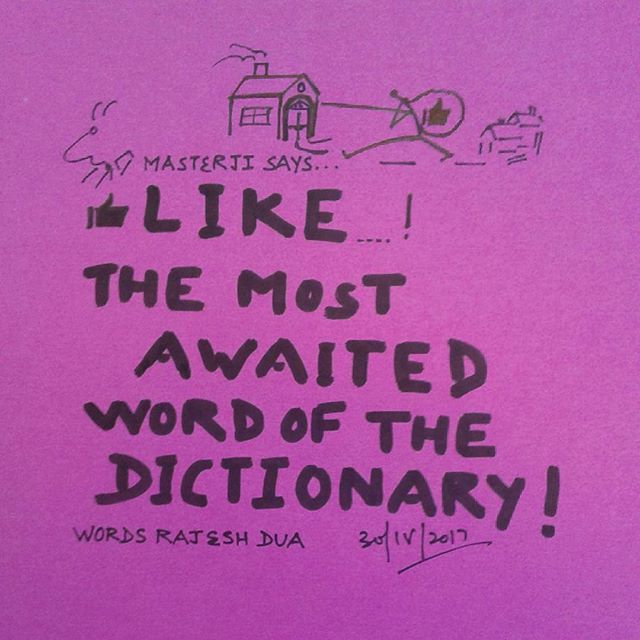 MASTERJI SAYS...
LIKE....!
THE MOST
AWAITED
WORD OF THE
DICTIONARY!
WORDS RAJESH DUA 30/IV/2017